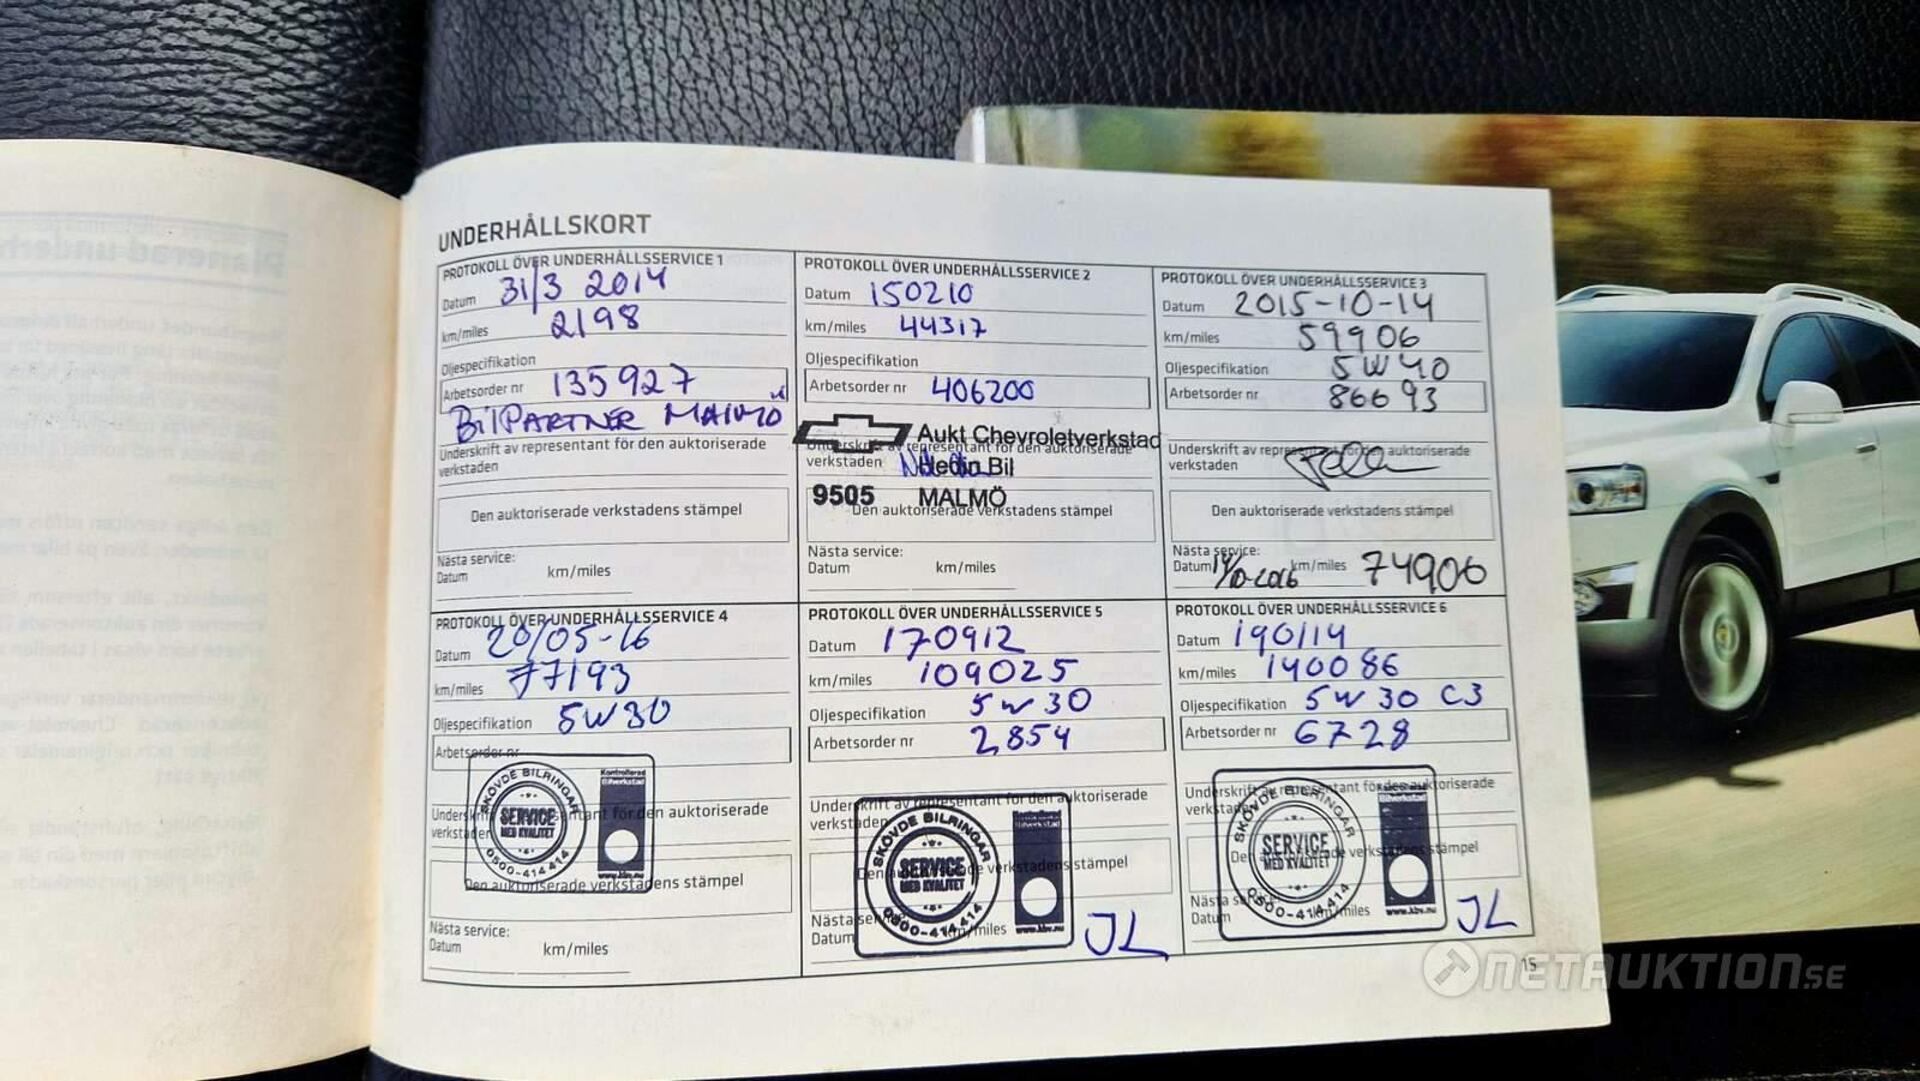 UNDERHÅLLSKORT
PROTOKOLL ÖVER UNDERHÅLLSSERVICE 1
Datum 31/3 2014
km/miles 2198
Oljespecifikation
Arbetsorder nr 135927
BilPARTNER MALMÖ
Underskrift av representant för den auktoriserade
verkstaden
Den auktoriserade verkstadens stämpel
Nästa service:
Datum km/miles
PROTOKOLL ÖVER UNDERHÅLLSSERVICE 2
Datum 150210
km/miles 44317
Oljespecifikation
Arbetsorder nr 406200
Aukt Chevroletverkstad
Underskrift av representant för den auktoriserade
verkstaden
Hedin Bil
9505 MALMÖ
Den auktoriserade verkstadens stämpel
Nästa service:
Datum km/miles
PROTOKOLL ÖVER UNDERHÅLLSSERVICE 3
Datum 2015-10-14
km/miles 59906
Oljespecifikation 5W40
Arbetsorder nr 86693
Underskrift av representant för den auktoriserade
verkstaden
Den auktoriserade verkstadens stämpel
Nästa service:
Datum 14/10-2016 km/miles 74906
PROTOKOLL ÖVER UNDERHÅLLSSERVICE 4
Datum 20/05-16
km/miles 77193
Oljespecifikation 5W30
Arbetsorder nr
SKÖVDE BILRINGAR
Kontrollerad
Bilverkstad
SERVICE
MED KVALITET
0500-414 414
www.kbv.nu
Underskrift av representant för den auktoriserade
verkstaden
Den auktoriserade verkstadens stämpel
Nästa service:
Datum km/miles
PROTOKOLL ÖVER UNDERHÅLLSSERVICE 5
Datum 170912
km/miles 109025
Oljespecifikation 5W30
Arbetsorder nr 2854
Underskrift av representant för den auktoriserade
verkstaden
SKÖVDE BILRINGAR
Kontrollerad
Bilverkstad
SERVICE
MED KVALITET
0500-414 414
www.kbv.nu
Den auktoriserade verkstadens stämpel
Nästa service:
Datum km/miles
JL
PROTOKOLL ÖVER UNDERHÅLLSSERVICE 6
Datum 190114
km/miles 140086
Oljespecifikation 5W30 C3
Arbetsorder nr 6728
Underskrift av representant för den auktoriserade
verkstaden
SKÖVDE BILRINGAR
Bilverkstad
SERVICE
MED KVALITET
0500-414 414
www.kbv.nu
Den auktoriserade verkstadens stämpel
Nästa service:
Datum km/miles
JL
15
NETAUKTION.SE